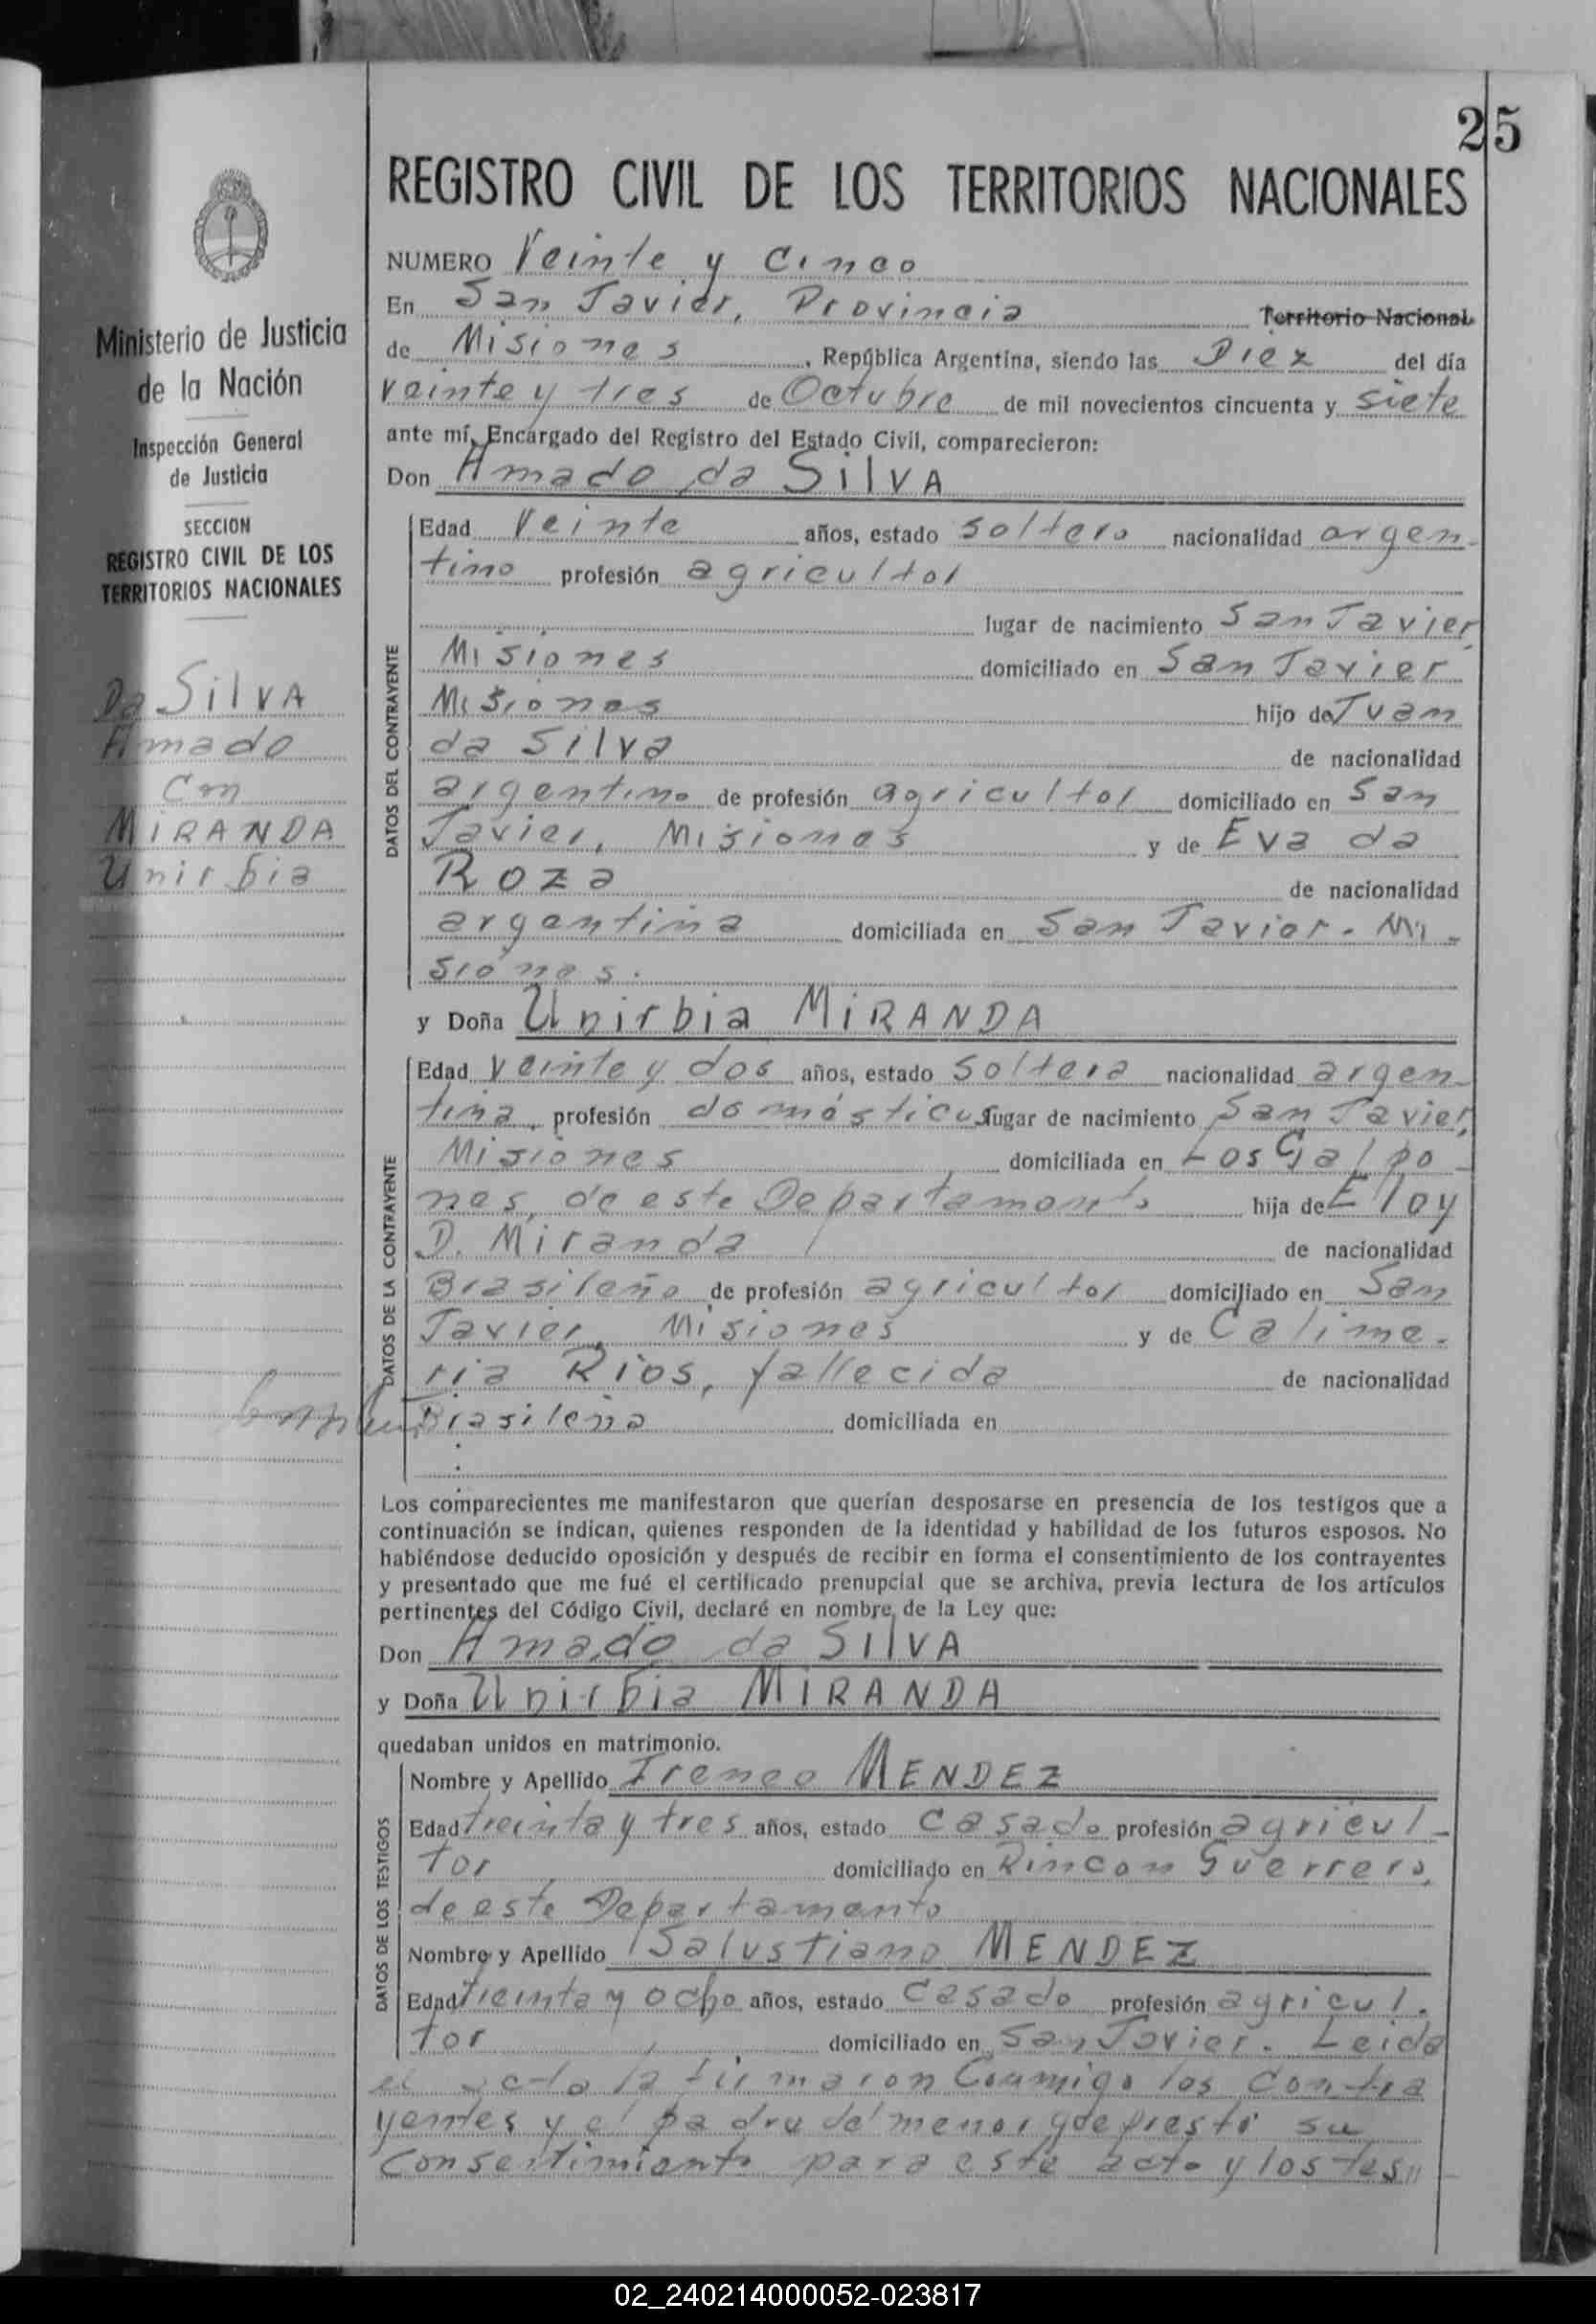 25
REGISTRO CIVIL DE LOS TERRITORIOS NACIONALES
Ministerio de Justicia
de la Nación
Inspección General
de Justicia
SECCION
REGISTRO CIVIL DE LOS
TERRITORIOS NACIONALES
Da SilVA
Amado
Con
MiRANDA
Unirbia
NUMERO Veinte y Cinco
En San Javier, Provincia Territorio Nacional
de Misiones, República Argentina, siendo las Diez del día
veinte y tres de Octubre de mil novecientos cincuenta y siete
ante mí, Encargado del Registro del Estado Civil, comparecieron:
Don Amado da SilVA
DATOS DEL CONTRAYENTE
Edad Veinte años, estado soltero nacionalidad argen-
tino profesión agricultor
lugar de nacimiento San Javier,
Misiones domiciliado en San Javier
Misiones hijo de Juan
da Silva de nacionalidad
argentino de profesión agricultor domiciliado en San
Javier, Misiones y de Eva da
Roza de nacionalidad
argentina domiciliada en San Javier. Mi-
siones.
y Doña Unirbia MiRANDA
DATOS DE LA CONTRAYENTE
Edad veinte y dos años, estado soltera nacionalidad argen-
tina, profesión domésticus lugar de nacimiento San Javier,
Misiones domiciliada en Los Galpo-
nes, de este Departamento hija de Eloy
D. Miranda de nacionalidad
Brasileño de profesión agricultor domiciliado en San
Javier, Misiones y de Calime-
ria Rios, fallecida de nacionalidad
Brasileña domiciliada en
Los comparecientes me manifestaron que querían desposarse en presencia de los testigos que a
continuación se indican, quienes responden de la identidad y habilidad de los futuros esposos. No
habiéndose deducido oposición y después de recibir en forma el consentimiento de los contrayentes
y presentado que me fué el certificado prenupcial que se archiva, previa lectura de los artículos
pertinentes del Código Civil, declaré en nombre de la Ley que:
Don Amado da SilVA
y Doña Unirbia MiRANDA
quedaban unidos en matrimonio.
DATOS DE LOS TESTIGOS
Nombre y Apellido Ireneo MENDEZ
Edad treinta y tres años, estado Casado profesión agricul-
tor domiciliado en Rincon Guerrero,
de este Departamento
Nombre y Apellido Salustiano MENDEZ
Edad treinta y ocho años, estado Casado profesión agricul.
tor domiciliado en San Javier. Leida
el acta la firmaron Conmigo los Contra
yentes y el padre del menor que prestó su
Consentimiento para este acto y los tes"
02_240214000052-023817